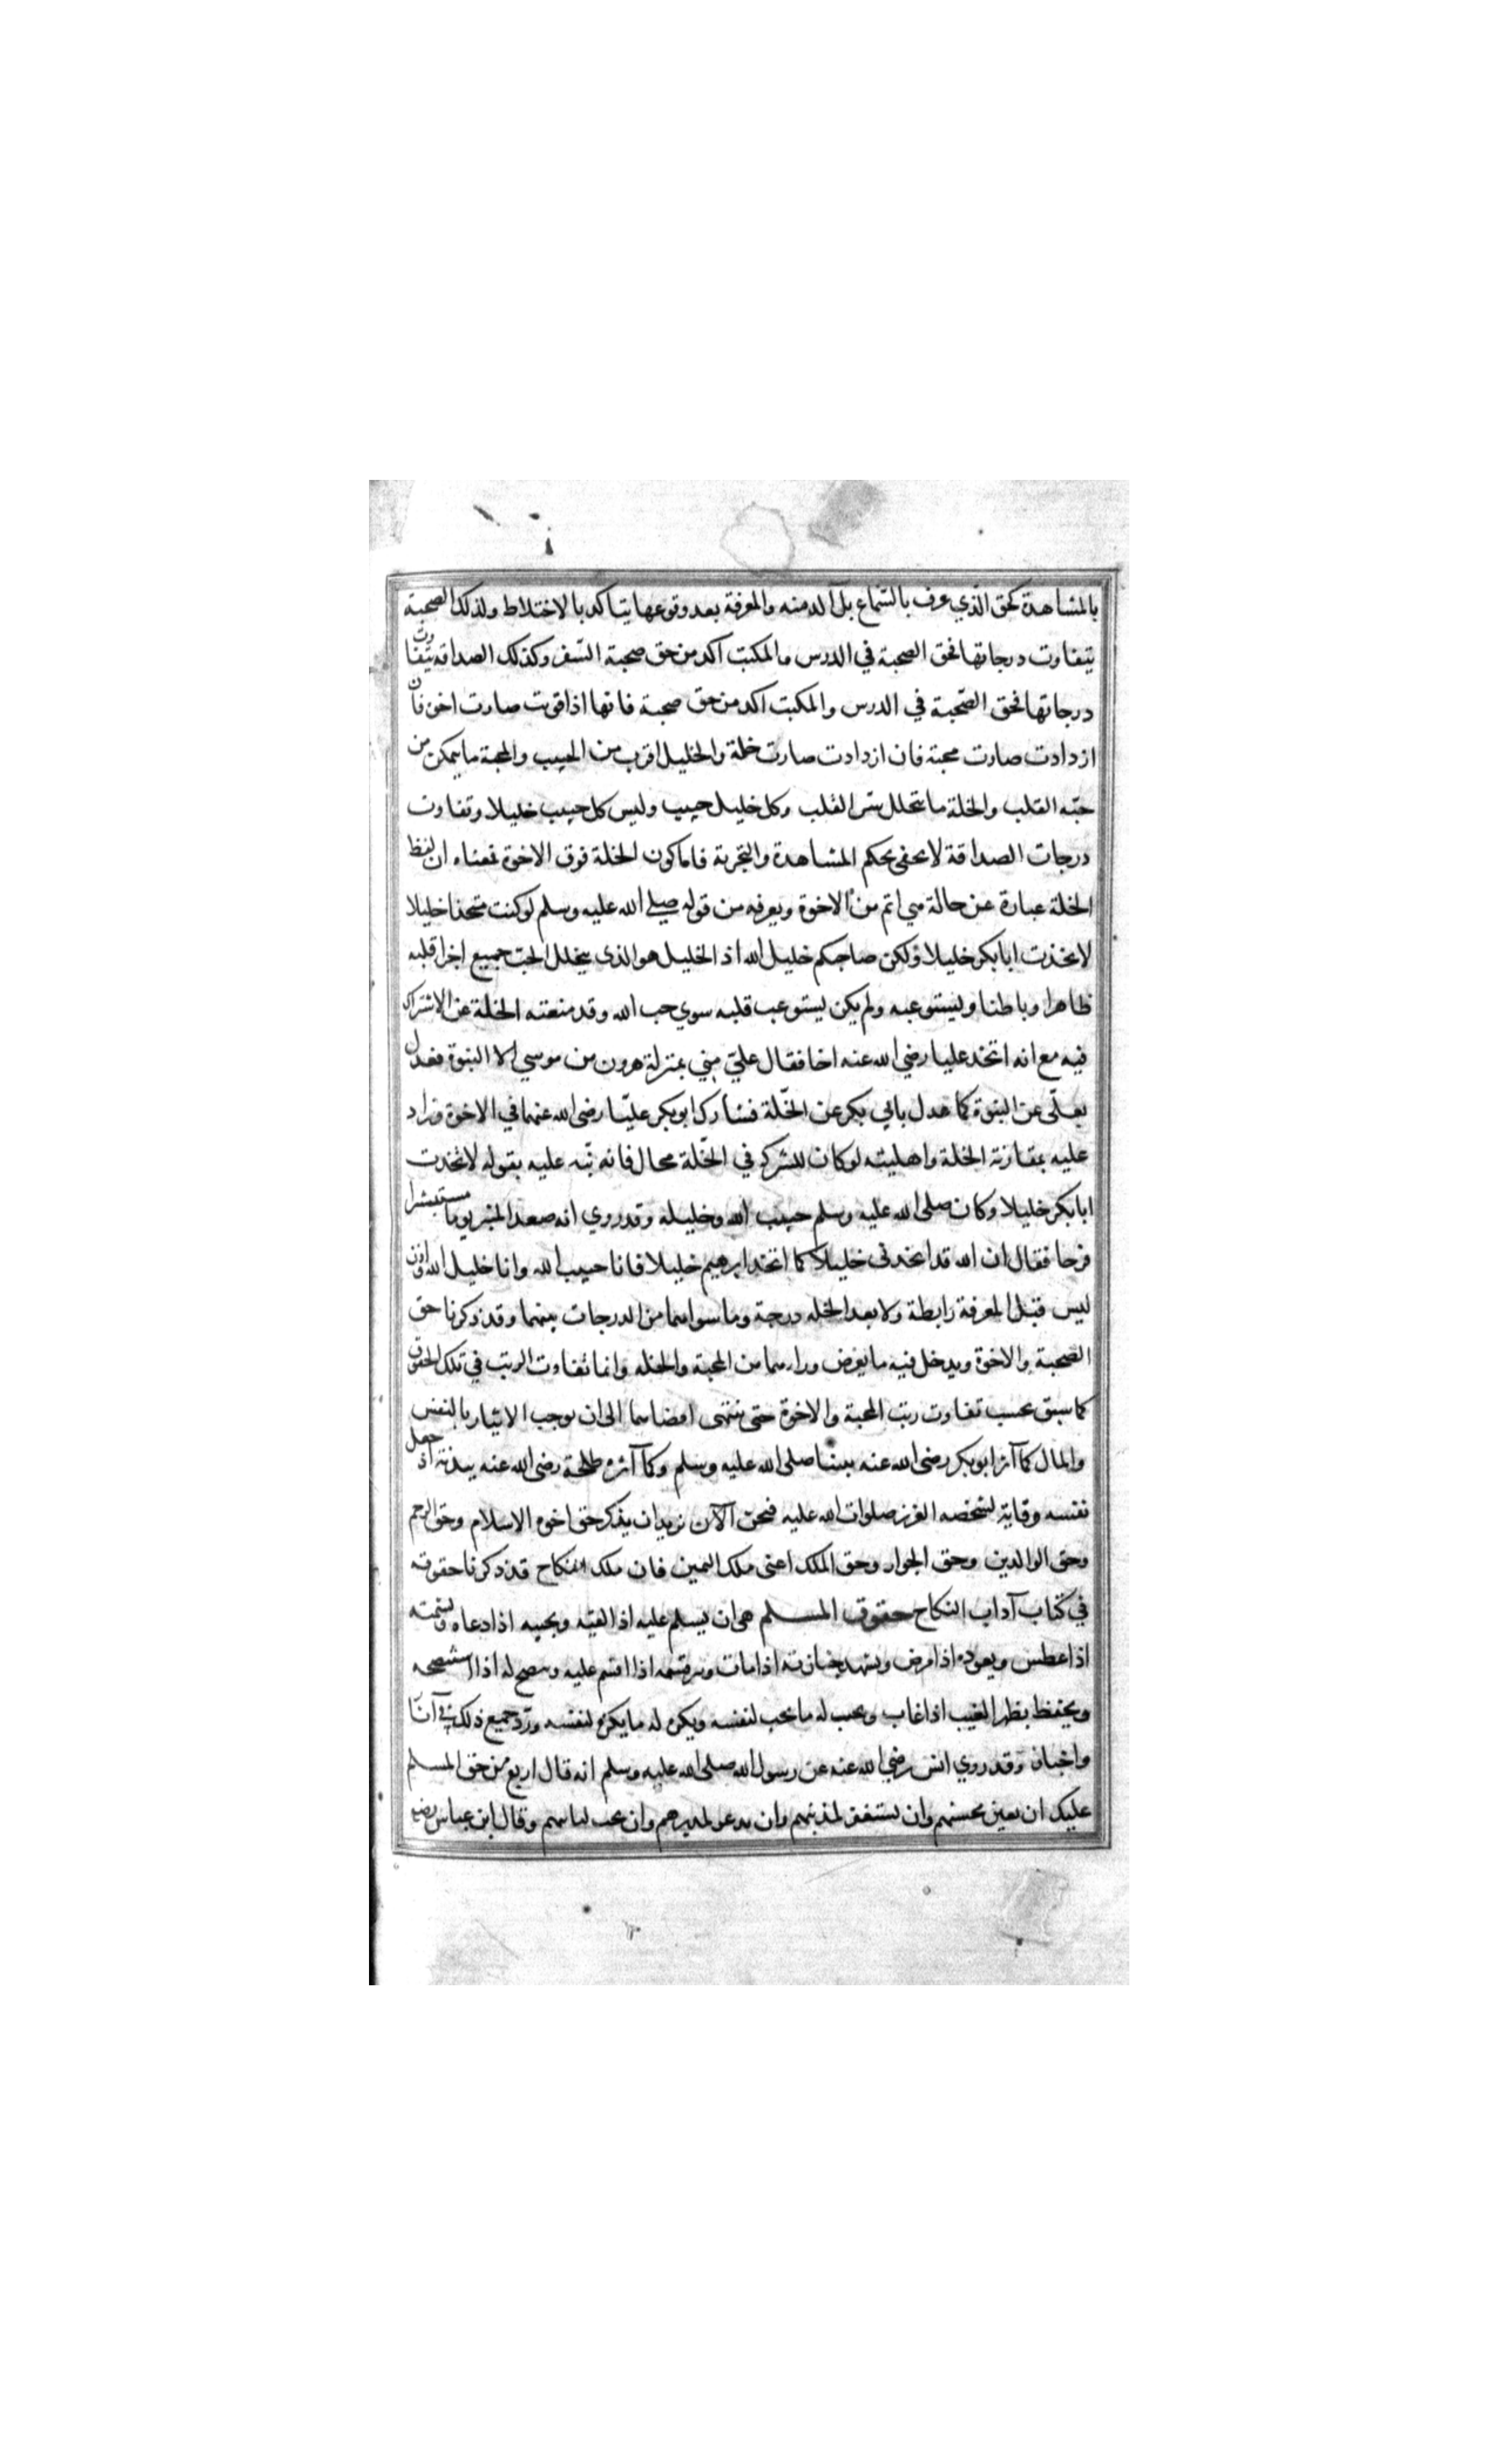 بالمشاهدة كحق الذي عرف بالسماع بل آكد منه والمعرفة بعد وقوعها يتاكد بالاختلاط ولذلك الصحبة
يتفاوت درجاتها فحق الصحبة في الدرس والمكتب اكد من حق صحبة السفر وكذلك الصداقه يتفاوت
درجاتها فحق الصحبة في الدرس والمكتب اكد من حق صحبة فانها اذا قويت صارت اخوة فان
ازدادت صارت محبة فان ازدادت صارت خلة والخليل اقرب من الحبيب والمحبة ما يتمكن من
حبه القلب والخلة ما يتخلل سر القلب وكل خليل حبيب وليس كل حبيب خليلا وتفاوت
درجات الصداقة لا يخفى بحكم المشاهدة والتجربة فاما كون الخلة فوق الاخوة فمعناه ان لفظ
الخلة عبارة عن حالة هي اتم من الاخوة ويعرفه من قوله صلى الله عليه وسلم لو كنت متخذا خليلا
لاتخذت ابا بكر خليلا ولكن صاحبكم خليل الله اذ الخليل هو الذي يتخلل الحب جميع اجزا قلبه
ظاهرا وباطنا وليستوعبه ولم يكن ليستوعب قلبه سوي حب الله وقد منعته الخلة عن الاشتراك
فيه مع انه اتخذ عليا رضي الله عنه اخا فقال علي مني بمنزلة هرون من موسي الا النبوة فعدل
بعلي عن النبوة كما عدل بابي بكر عن الخلة فشارك ابو بكر عليا رضى الله عنهما في الاخوة وزاد
عليه بمقارنة الخلة واهليته لو كان للشركه في الخلة مجال فانه نبه عليه بقوله لاتخذت
ابا بكر خليلا وكان صلى الله عليه وسلم حبيب الله وخليله وقد روي انه صعد المنبر يوما مستبشرا
فرحا فقال ان الله قد اتخذنى خليلا كما اتخذ ابرهيم خليلا فانا حبيب الله وانا خليل الله فاذن
ليس قبل المعرفة رابطة ولا بعد الخله درجة وما سواهما من الدرجات بينهما وقد ذكرنا حق
الصحبة والاخوة ويدخل فيه ما يعرض وراهما من المحبة والخله وانما تفاوت الرتب في تلك الحقوق
كما سبق بحسب تفاوت رتب المحبة والاخوة حتى ينتهى اقصاهما الى ان يوجب الايثار بالنفس
والمال كما آثر ابو بكر رضى الله عنه نبينا صلى الله عليه وسلم وكما آثره طلحة رضى الله عنه ببدنه اذ جعل
نفسه وقاية لشخصه العزيز صلوات الله عليه فنحن الآن نريد ان يذكر حق اخوه الاسلام وحق الرحم
وحق الوالدين وحق الجوار وحق الملك اعنى ملك اليمين فان ملك النكاح قد ذكرنا حقوقه
في كتاب آداب النكاح حقوق المسلم هى ان يسلم عليه اذا لقيه ويجيبه اذا دعاه ويشمته
اذا عطس ويعوده اذا مرض ويشهد جنازته اذا مات ويبر قسمه اذا اقسم عليه وينصح له اذا استنصحه
ويحفظ بظهر الغيب اذا غاب ويحب له ما يحب لنفسه ويكره له ما يكره لنفسه ورد جميع ذلك في آثار
واخبار وقد روي انس رضي الله عنه عن رسول الله صلى الله عليه وسلم انه قال اربع من حق المسلم
عليك ان يعين محسنهم وان يستغفر لمذنبهم وان يدعو لمدبرهم وان يحب تائبهم وقال ابن عباس رضى